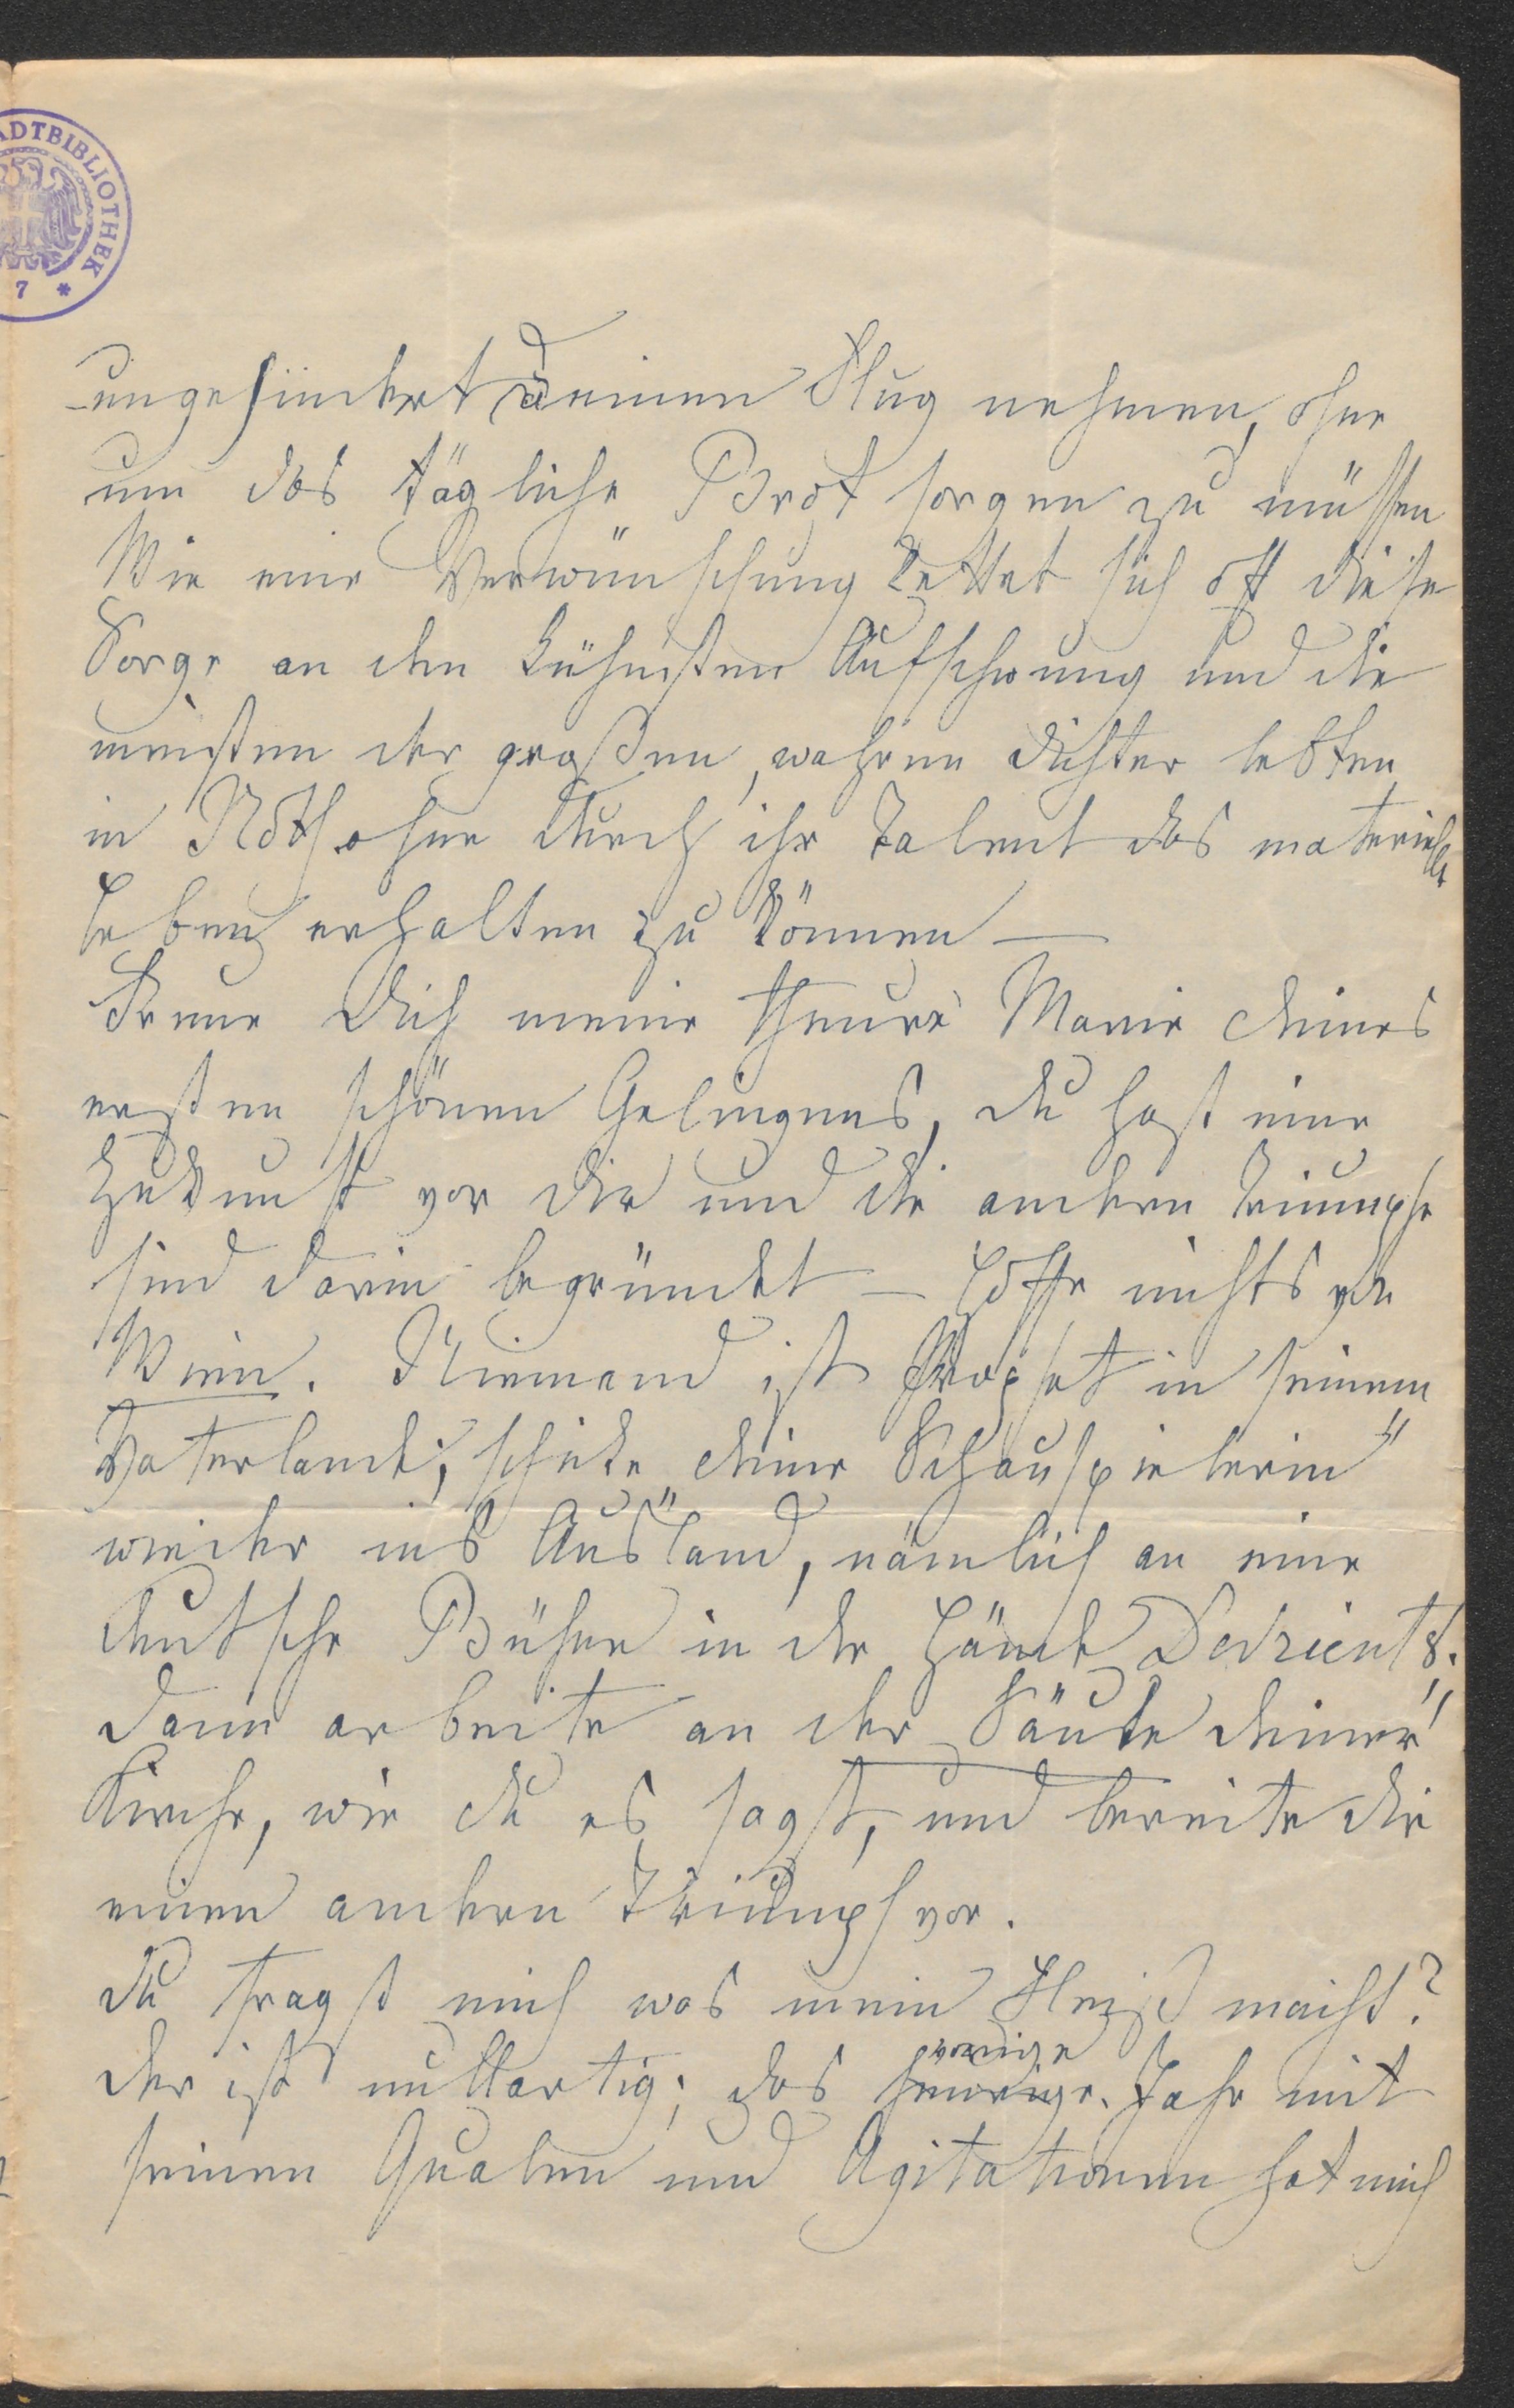 ADTBIBLIOTHEK
7 *
ungehindert deinen Flug nehmen, ohne
um das tägliche Brot sorgen zu müssen
Wie eine Verwünschung kettet sich oft diese
Sorge an den kühnsten Aufschwung und die
meisten der großen, wahren Dichter lebten
in Noth ohne durch ihr Talent das materielle
Leben erhalten zu können —
Freue Dich meine theure Marie deines
ersten schönen Gelingens, du hast eine
Zukunft vor dir und die andern Triumphe
sind darin begründet — Hoffe nichts von
Wien. Niemand ist Prophet in seinem
Vaterlande; schicke deine "Schauspielerin"
wieder ins Ausland, nämlich an eine
deutsche Bühne in die Hände Devrients.
Dann arbeite an der "Säule deiner"
Kirche, wie du es sagst, und bereite dir
einen andern Triumph vor.
Du fragst mich was mein Fleiß macht?
der ist nullartig; das vorige
heurige Jahr mit
seinen Qualen und Agitationen hat mich